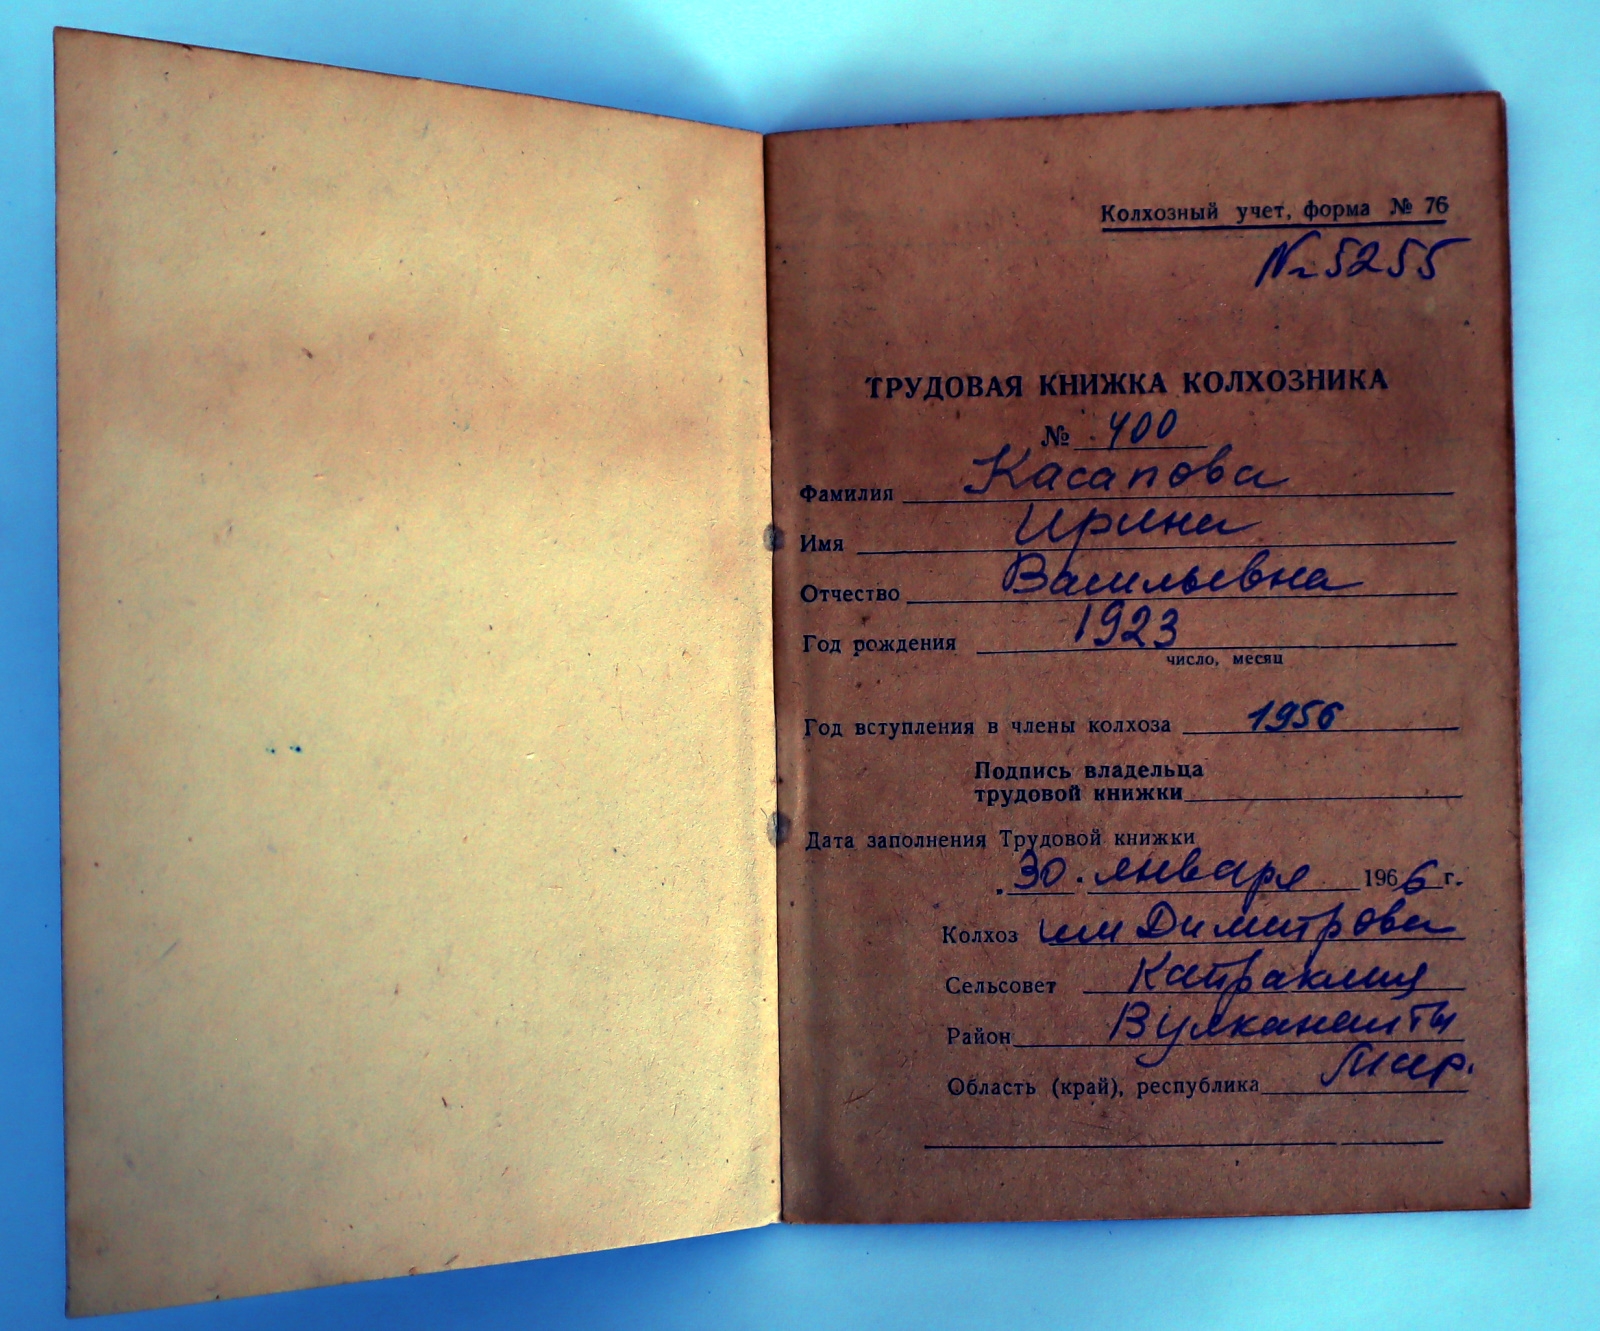 Колхозный учет, форма № 76
№ 5255
ТРУДОВАЯ КНИЖКА КОЛХОЗНИКА
№ 400
Фамилия Касапова
Имя Ирина
Отчество Васильевна
Год рождения 1923
число, месяц
Год вступления в члены колхоза 1956
Подпись владельца
трудовой книжки
Дата заполнения Трудовой книжки
30. января 1966 г.
Колхоз им Димитрова
Сельсовет
Район Вулканешты
Область (край), республика